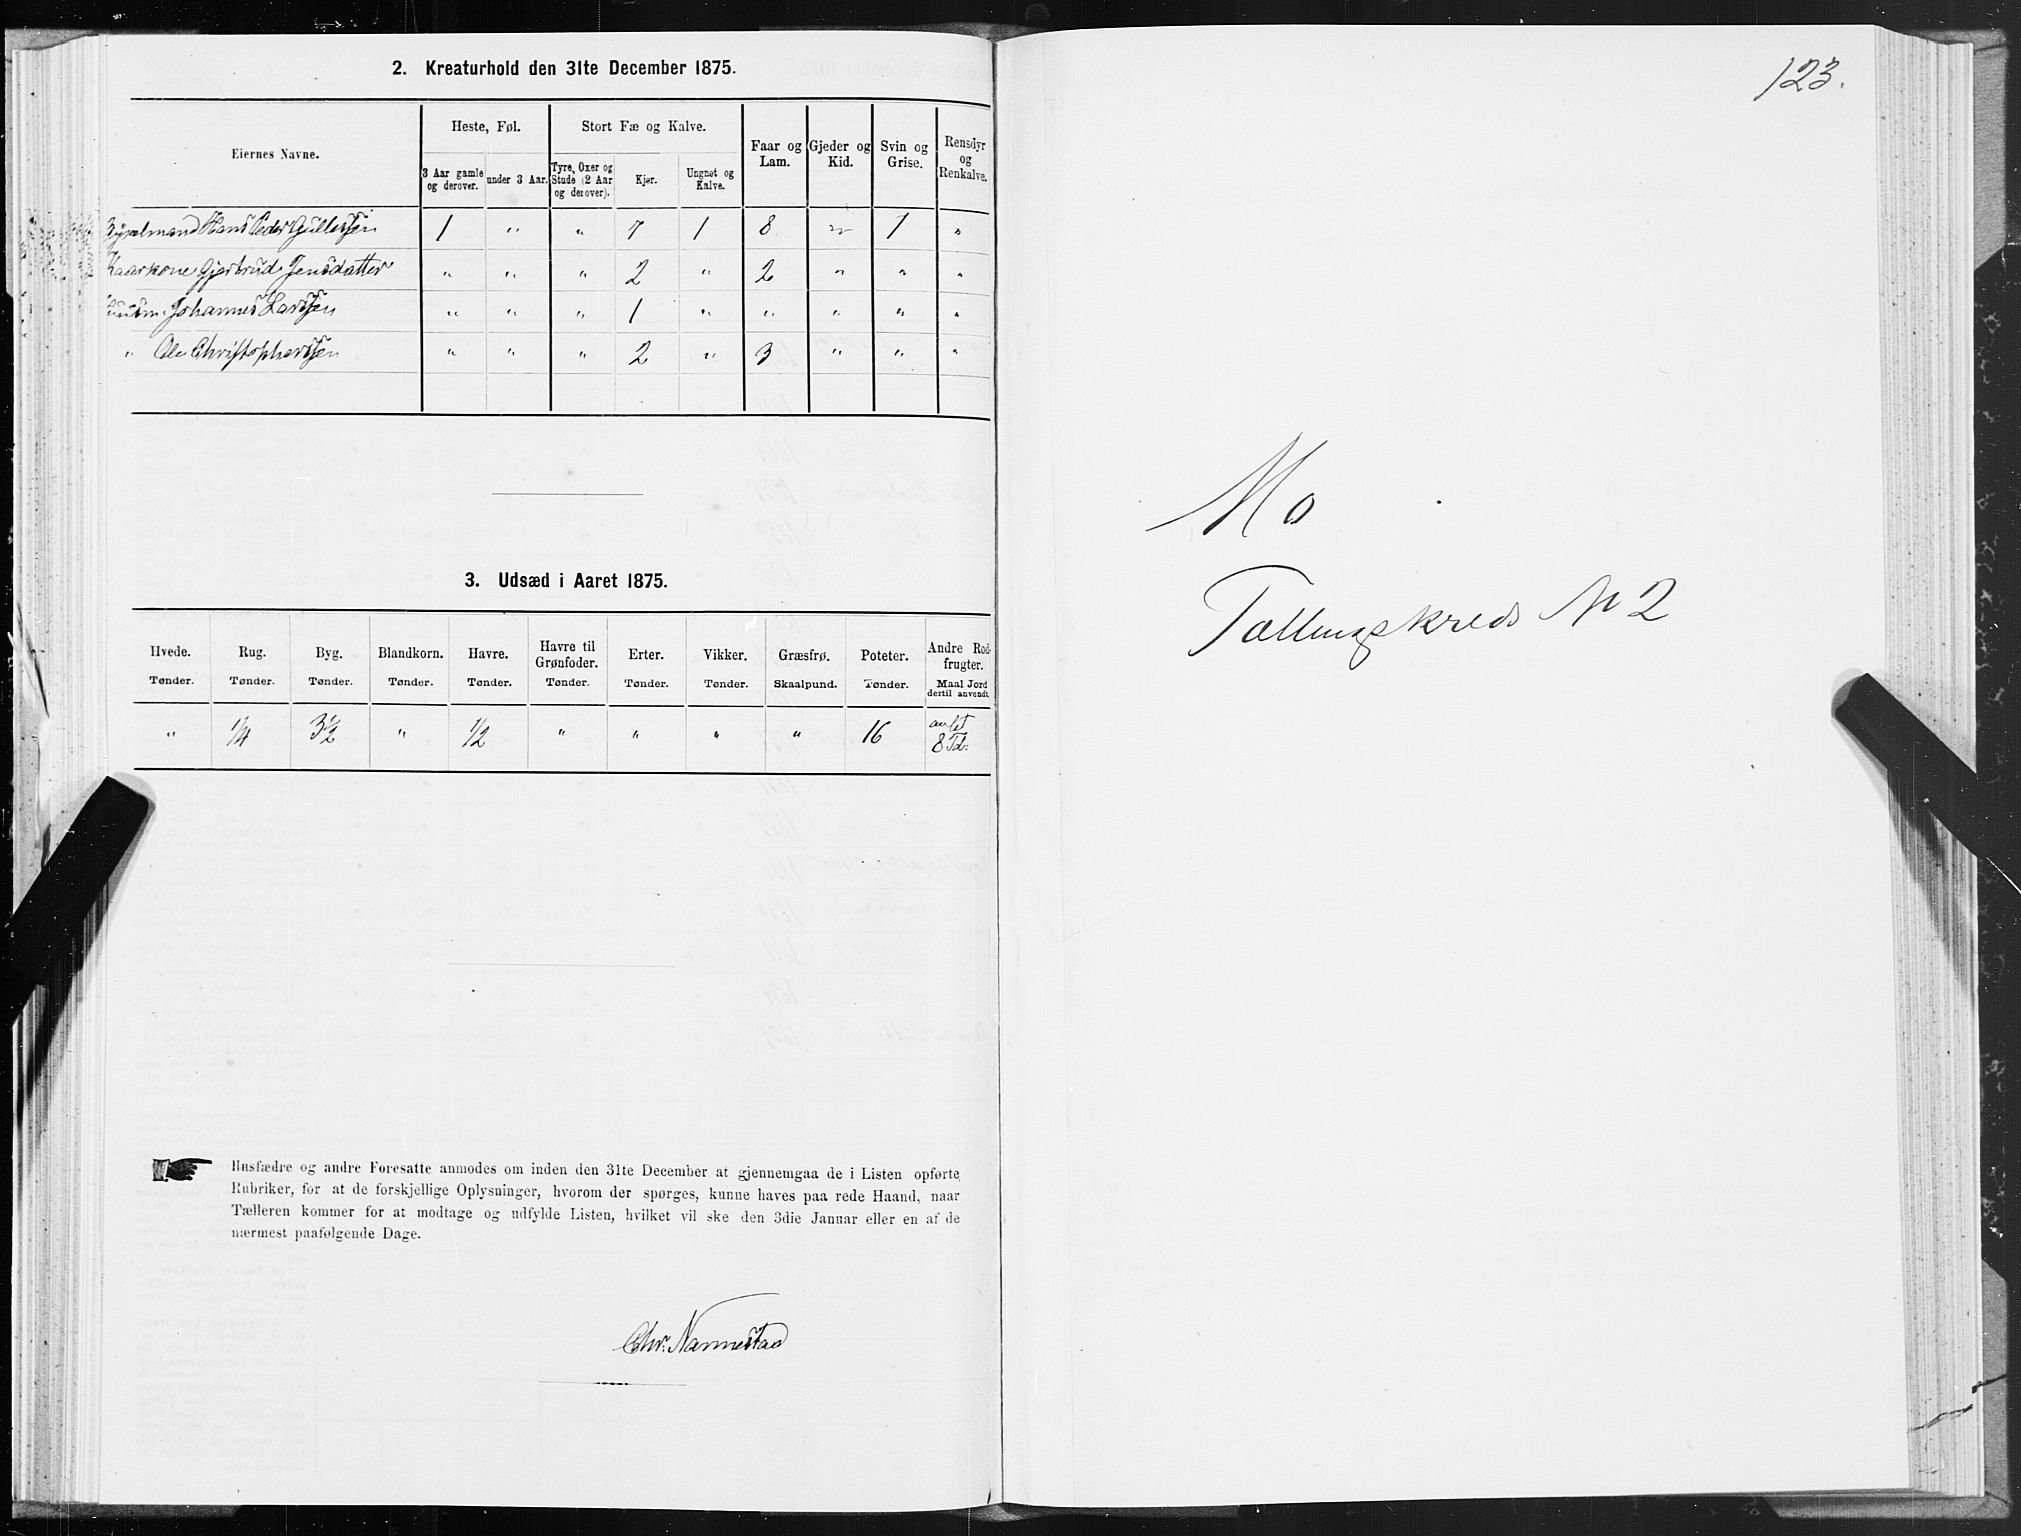 2. Kreaturhold den 31te December 1875.
Eiernes Navne.
Heste, Føl.
Stort Fæ og Kalve.
Faar og Lam.
Gjeder og Kid.
Svin og Grise.
Rensdyr og Renkalve.
3 Aar gamle og derover.
under 3 Aar.
Tyre, Oxer og Stude (2 Aar og derover).
Kjør.
Ungnøt og Kalve.
Hans Peder 1 " " 7 1 8 " 1 "
Kaarkone Gjertrud Jensdatter " " " 2 " 2 " " "
Huusm. Johannes Larssen " " " 1 " " " " "
" Ole Christophersen " " " 2 " 3 " " "
3. Udsæd i Aaret 1875.
Hvede. Rug. Byg. Blandkorn. Havre. Havre til Grønfoder. Erter. Vikker. Græsfrø. Poteter. Andre Rodfrugter.
Tønder. Tønder. Tønder. Tønder. Tønder. Tønder. Tønder. Tønder. Skaalpund. Tønder. Maal Jord dertil anvendt.
" 1/4 3½ " 1/2 " " " " 16 avlet 8 Td:
Husfædre og andre Foresatte anmodes om inden den 31te December at gjennemgaa de i Listen opførte
Rubriker, for at de forskjellige Oplysninger, hvorom der spørges, kunne haves paa rede Haand, naar
Tælleren kommer for at modtage og udfylde Listen, hvilket vil ske den 3die Januar eller en af de
nærmest paafølgende Dage.
Chr. Nannestad
123.
Mo
Tællingskreds N 2